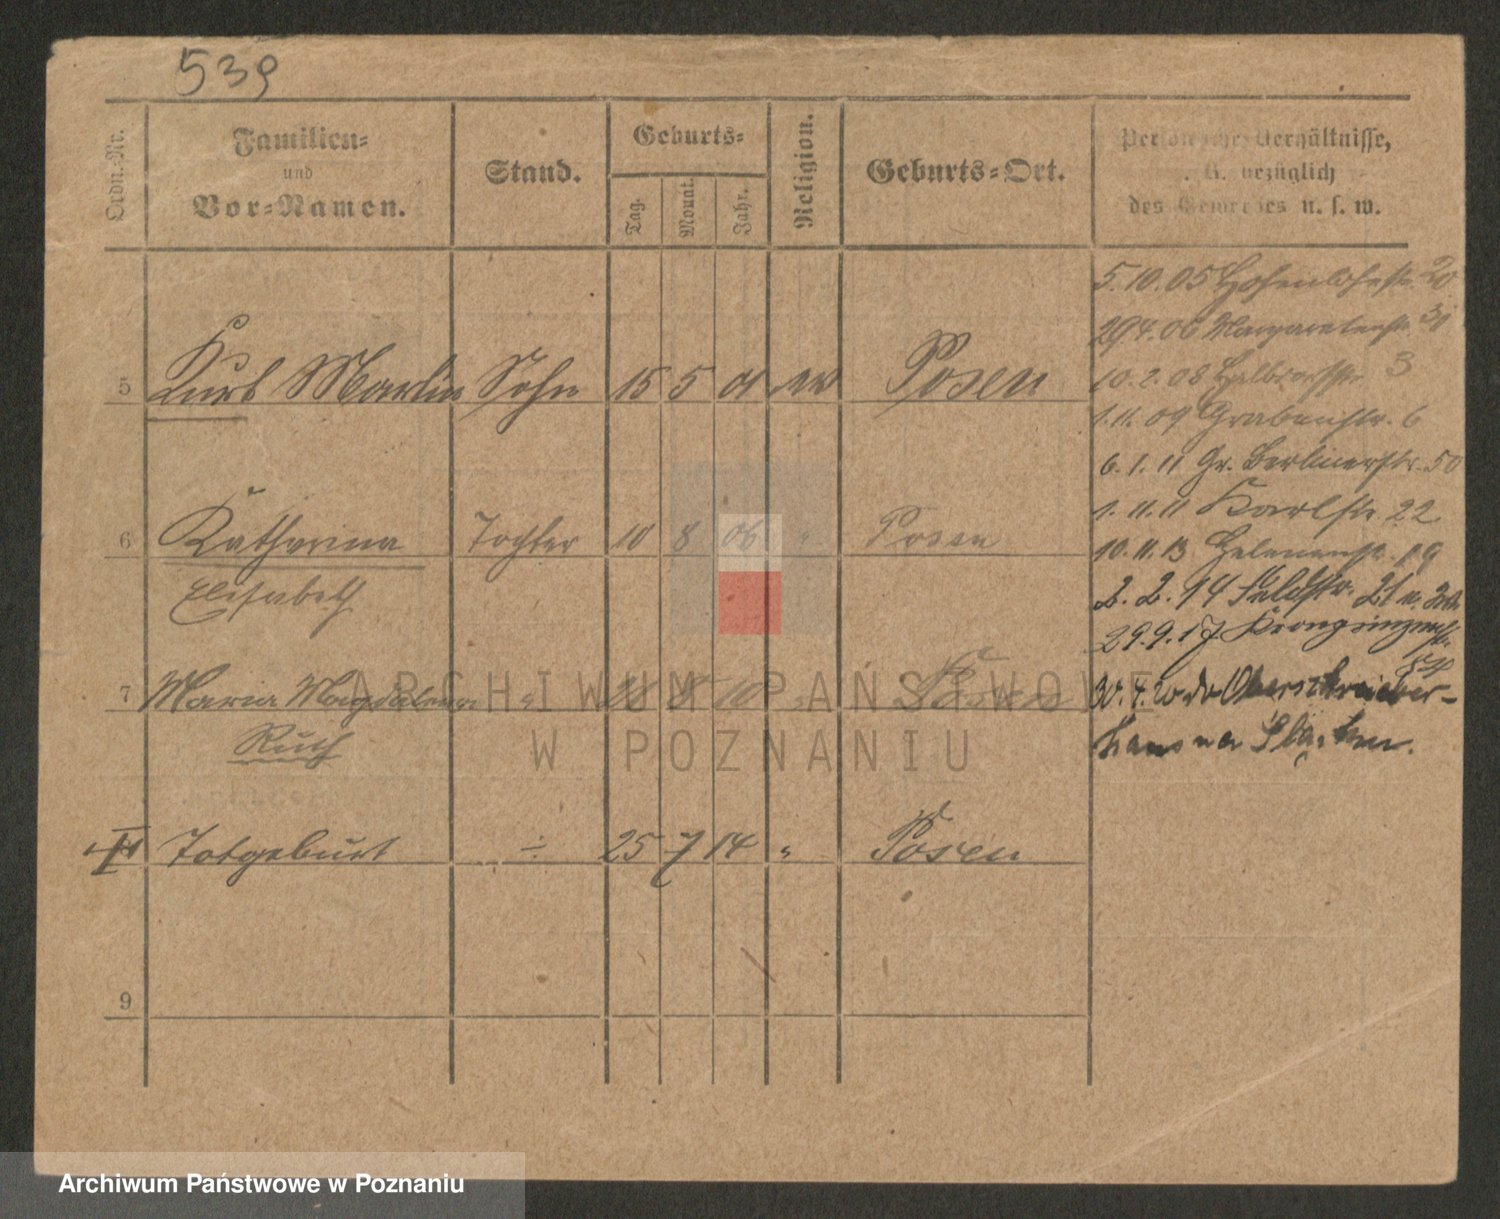 539
Ordn.-Nr.
Familien-
und
Vor-Namen.
Stand.
Geburts-
Tag.
Monat.
Jahr.
Religion.
Geburts-Ort.
Persönliche Verhältnisse,
bezüglich
des Gewerbes u. s. w.
5 Kurt Martin Sohn 15 5 01 Posen
6 Katharina Tochter 10 8 06 " Posen
Elisabeth
7 Maria Magdalena " 28 8 10 " Posen
Ruth
Totgeburt ÷ 25 7 14 " Posen
9
5.10.05 Hohenlohestr. 20
29.4.06 Margaretenstr. 31
10.2.08 Halbdorfstr. 3
1.11.09 Grabenstr. 6
6.1.11 Gr. Berlinerstr. 50
1.11.11 Karlstr. 22
10.11.13 Helenenstr. 19
2.2.14 Feldstr. 21 u.
29.9.17 Kronprinzenstr.
Oberschreiber-
haus
ARCHIWUM PAŃSTWOWE
W POZNANIU
Archiwum Państwowe w Poznaniu